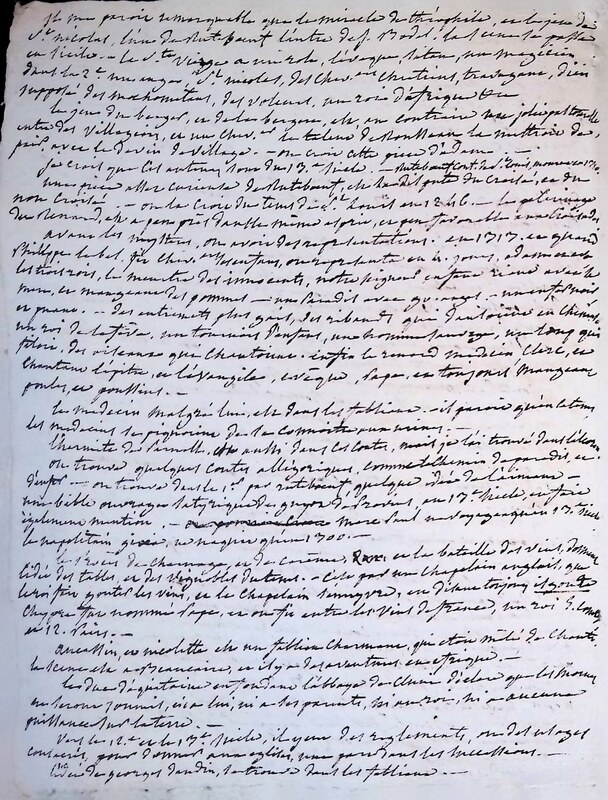 il me paroit remarquable que le miracle de théophile, et le jeu de
St nicolas, l'un de Rutebeuf l'autre de j. Bodel, la scene se passe
en sicile. - la Ste Vierge a un role, l'évêque, satan, un magicien
dans la 2e un ange, St nicolas, des chev. chretiens, tervagant, dieu
supposé des mahometans, des voleurs, un roi d'afrique &c
le jeu du berger, et de la bergere, est au contraire une jolie pastorale
entre des villageois, et un chev. le talent de Rousseau la mettroit de
pair, avec le devin du village. - on croit cette piece d'adam
je crois que ces auteurs sont du 13e siecle. - Rutebeuf cont. de St Louis, mourut en
une piece assez curieuse de Rutebeuf, est la dispute du croisé, et du
non croisé. - on la croit du tems de St Louis en 1246. - le pelerinage
du Renard, est a peu près dans le même esprit, et peu favorable aux croisades
avant les mysteres, on avoit des representations. en 1313. quand
Philippe le bel, fit chev. ses enfans, on representa en 4 jours, adam et eve
les trois rois, le meurtre des innocents, notre seigneur enfant riant avec sa
mere, et mangeant des pommes - un Paradis avec 90 anges - un enfer noir
et puant. - des entremets plus gais, des ribauds qui dansoient en chemise
un roi de la fève, un tournois d'enfans, un homme sauvage, un loup qui
filoit, des oiseaux qui chantoient. enfin le renard medecin, clerc, et
chantant l'épitre, et l'évangile, evêque, Pape, et toujours mangeant
poules, et poussins. -
le medecin malgré lui, est dans les fabliaux. - il paroit qu'en ce tems
les medecins se piquoient de se connoitre aux urines. -
l'hermite de Parnell, est aussi dans ces contes, mais je l'ai trouvé dans
on trouve quelques contes allégoriques, comme le chemin de paradis, et
d'enfer. - on trouve dans le 1er par rutebeuf quelque idée de l'aimant
une bible ouvrage satyrique de guyot de Provins, au 13e siecle, en fait
également mention. - marc Paul ne voyagea qu'en 13e siecle
le napolitain gioia, ne naquit qu'en 1300. -
le procès de charnage, et de carême, et la bataille des vins, donnent
l'idée des tables, et des vignobles du tems. - c'est par un chapelain anglais, que
le roi fit gouter les vins, et le chapelain s'ennyvre, en disant toujours is goute
Chypre fut nommé Pape, et on fit entre les vins de france, un roi 3. comtes
et 12. Pairs. -
aucassin, et nicolette est un fabliau charmant, qui est un mêlé de chants
la scene est a Beaucaire, et il y a des aventures en afrique. -
les duc d'aquitaine en fondant l'abbaye de Cluni declare que les moines
ne seront soumis, ni a lui, ni a ses parents, ni au roi, ni a aucune
puissance sur la terre. -
Vers le 12e et le 13e siecle, il y eut des reglements, ou des usages
consacrés, pour donner aux eglises, une part dans les successions. -
l'idée de georges dandin, se trouve dans les fabliaux. -